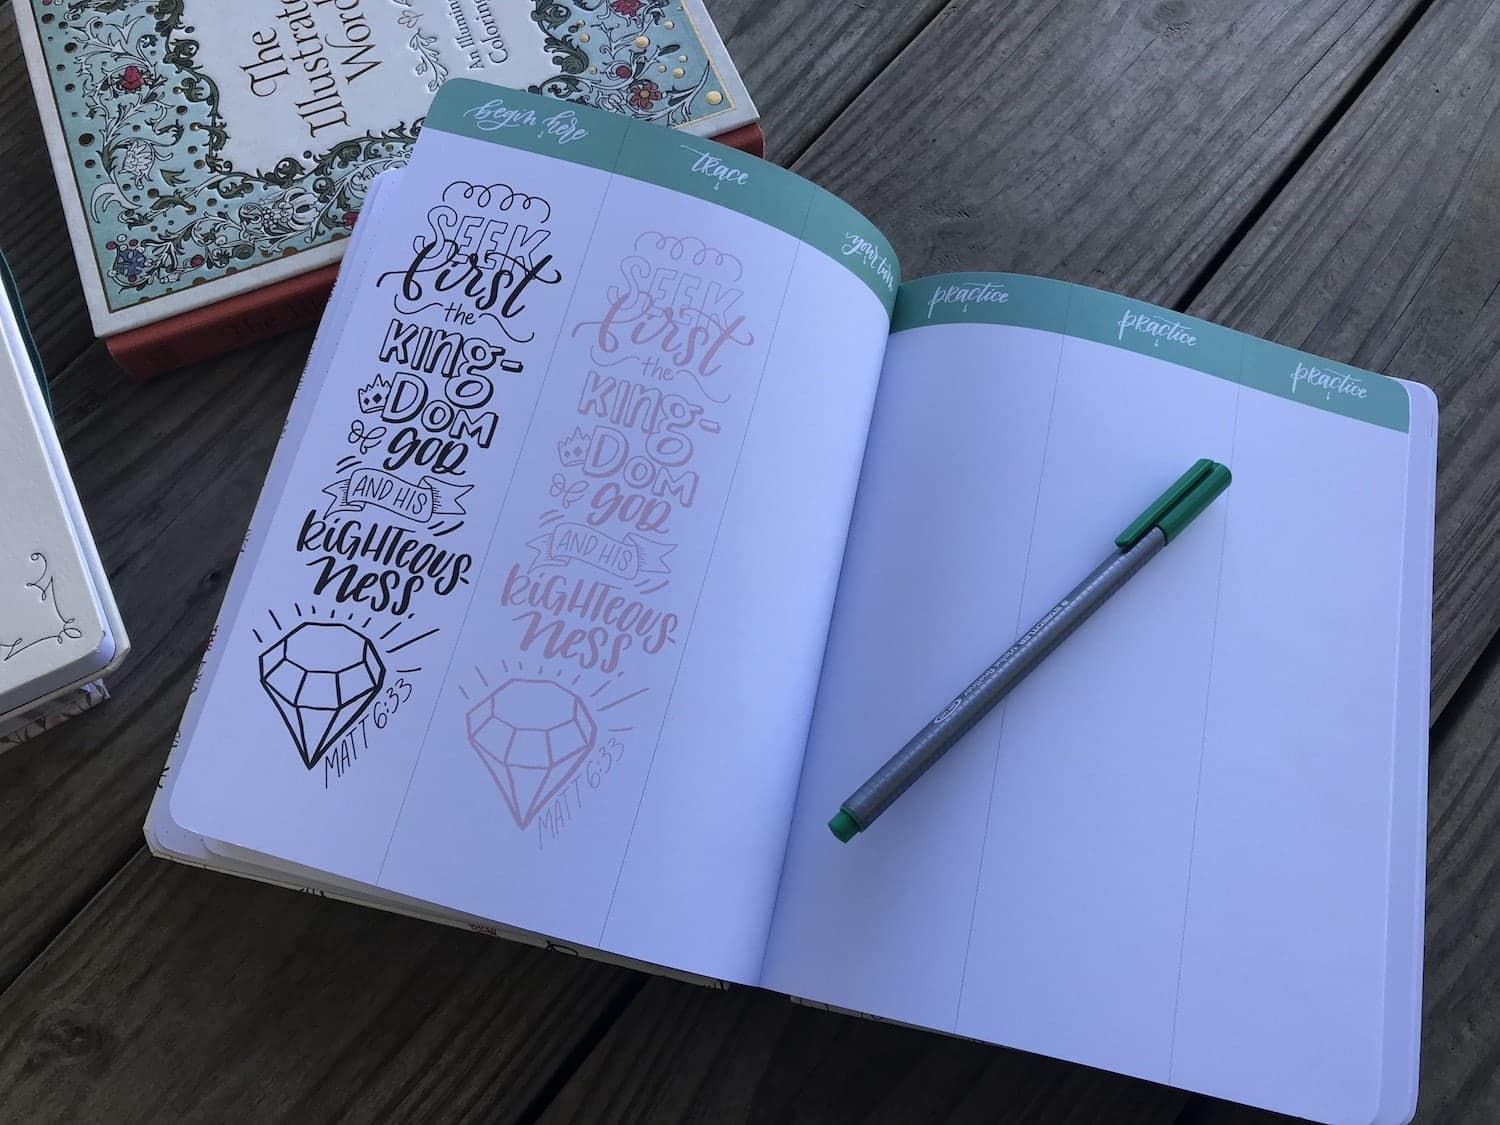 The
Illustrated
Word
An Illumin
Coloring
begin here
trace
your turn
practice
practice
practice
SEEK
first
the
KING-
DOM
of GOD
AND HIS
RIGHTEOUS-
NESS.
MATT 6:33
SEEK
first
the
KING-
DOM
of GOD
AND HIS
RIGHTEOUS-
NESS.
MATT 6:33